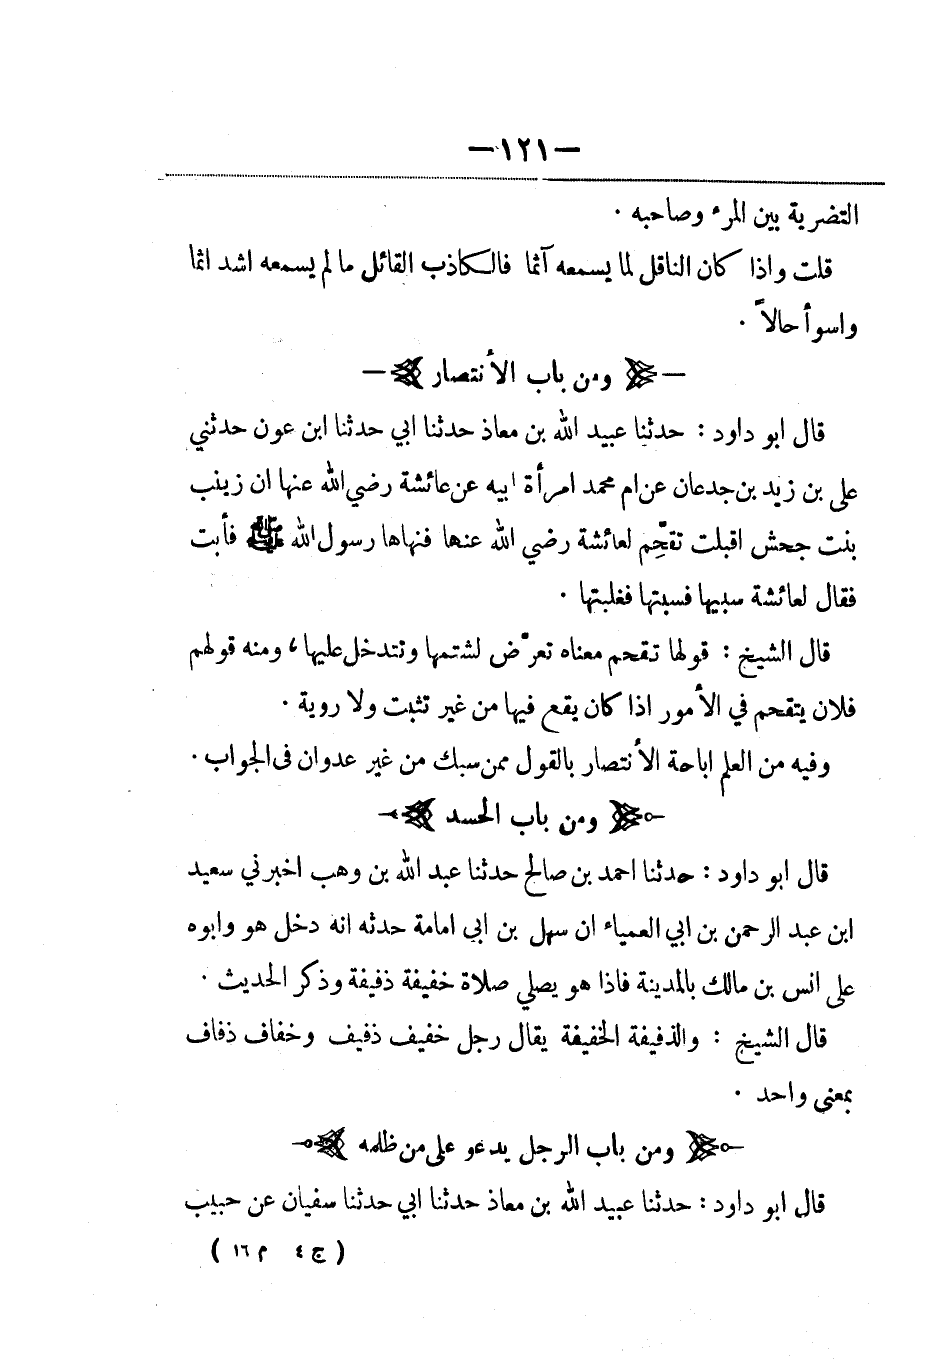 — ١٢١ —
التضرية بين المرء وصاحبه .
قلت واذا كان الناقل لما يسمعه آثما فالكاذب القائل ما لم يسمعه اشد اثما
واسوأ حالاً .
— ومن باب الأنتصار —
قال ابو داود : حدثنا عبيد الله بن معاذ حدثنا ابي حدثنا ابن عون حدثني
علي بن زيد بن جدعان عن ام محمد امرأة ابيه عن عائشة رضي الله عنها ان زينب
بنت جحش اقبلت تقحّم لعائشة رضي الله عنها فنهاها رسول الله ﷺ فأبت
فقال لعائشة سبيها فسبتها فغلبتها .
قال الشيخ : قولها تقحم معناه تعرّض لشتمها وتتدخل عليها ، ومنه قولهم
فلان يتقحم في الأمور اذا كان يقع فيها من غير تثبت ولا روية .
وفيه من العلم اباحة الأنتصار بالقول ممن سبك من غير عدوان فى الجواب .
ومن باب الحسد
قال ابو داود : حدثنا احمد بن صالح حدثنا عبد الله بن وهب اخبرني سعيد
ابن عبد الرحمن بن ابي العمياء ان سهل بن ابي امامة حدثه انه دخل هو وابوه
على انس بن مالك بالمدينة فاذا هو يصلي صلاة خفيفة ذفيفة وذكر الحديث .
قال الشيخ : والذفيفة الخفيفة يقال رجل خفيف ذفيف وخفاف ذفاف
بمعنى واحد .
ومن باب الرجل يدعو على من ظلمه
قال ابو داود : حدثنا عبيد الله بن معاذ حدثنا ابي حدثنا سفيان عن حبيب
( ج ٤ م ١٦ )